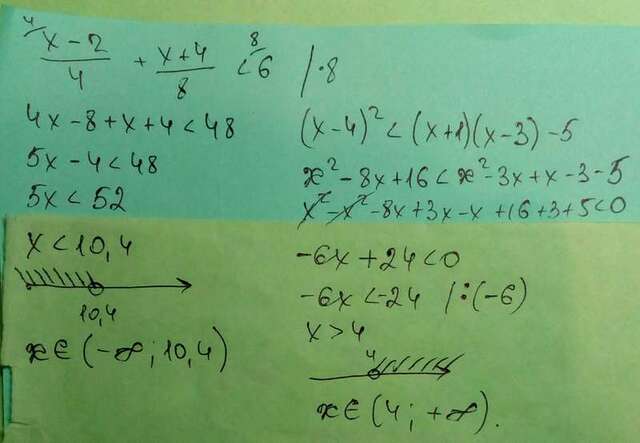 ⁴/ (x-2)/4 + (x+4)/8 < ⁸/6 /·8
4x-8+x+4<48
5x-4<48
5x<52
x<10,4
10,4
x∈(-∞;10,4)
(x-4)²<(x+1)(x-3)-5
x²-8x+16<x²-3x+x-3-5
x²-x²-8x+3x-x+16+3+5<0
-6x+24<0
-6x<-24 /:(-6)
x>4
4
x∈(4;+∞).